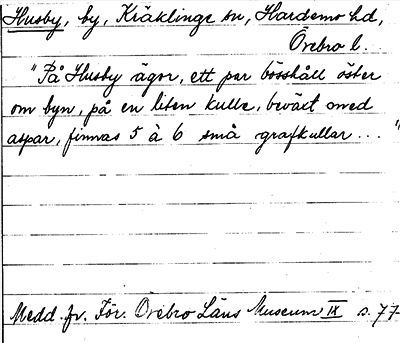 Husby, by, Kräklinge sn, Hardemo hd,
Örebro l.
"På Husby ägor, ett par bösshåll öster
om byn, på en liten kulle, beväxt med
aspar, finnas 5 à 6 små grafkullar ... "
Medd. fr. För. Örebro Läns Museum IX s. 77